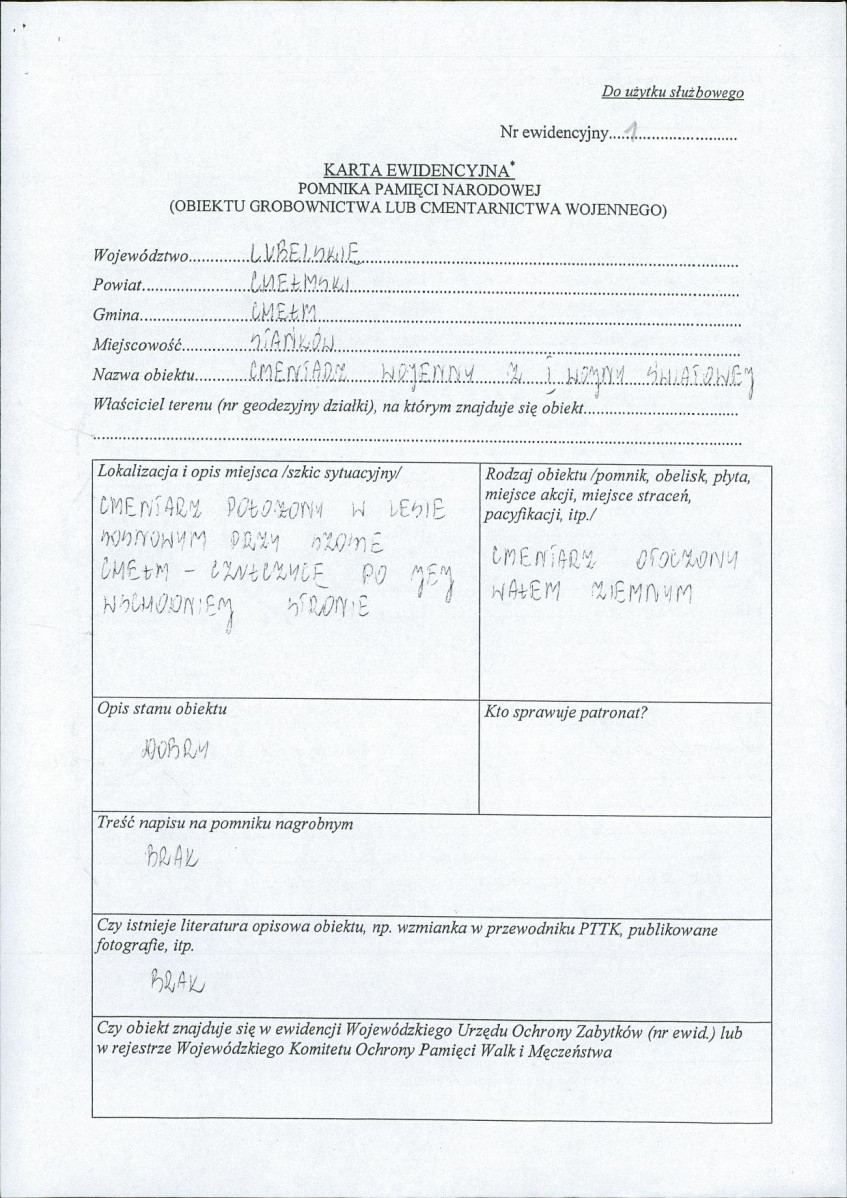 Do użytku służbowego
Nr ewidencyjny.....1..........................
KARTA EWIDENCYJNA*
POMNIKA PAMIĘCI NARODOWEJ
(OBIEKTU GROBOWNICTWA LUB CMENTARNICTWA WOJENNEGO)
Województwo LUBELSKIE
Powiat CHEŁMSKI
Gmina CHEŁM
Miejscowość STAŃKÓW
Nazwa obiektu CMENTARZ WOJENNY Z I WOJNY ŚWIATOWEJ
Właściciel terenu (nr geodezyjny działki), na którym znajduje się obiekt
Lokalizacja i opis miejsca /szkic sytuacyjny/
CMENTARZ POŁOŻONY W LESIE
SOSNOWYM PRZY SZOSIE
CHEŁM – CZUŁCZYCE PO JEJ
WSCHODNIEJ STRONIE
Rodzaj obiektu /pomnik, obelisk, płyta,
miejsce akcji, miejsce straceń,
pacyfikacji, itp./
CMENTARZ OTOCZONY
WAŁEM ZIEMNYM
Opis stanu obiektu
DOBRY
Kto sprawuje patronat?
Treść napisu na pomniku nagrobnym
BRAK
Czy istnieje literatura opisowa obiektu, np. wzmianka w przewodniku PTTK, publikowane
fotografie, itp.
BRAK
Czy obiekt znajduje się w ewidencji Wojewódzkiego Urzędu Ochrony Zabytków (nr ewid.) lub
w rejestrze Wojewódzkiego Komitetu Ochrony Pamięci Walk i Męczeństwa